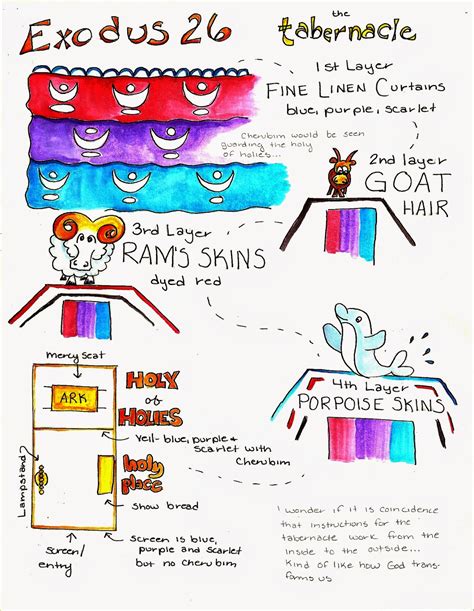 Exodus 26
the
tabernacle
1st Layer
FINE LINEN CURTAINS
blue, purple, scarlet
Cherubim would be seen
guarding the holy
of holies...
2nd layer
GOAT
HAIR
3rd Layer
RAM'S SKINS
dyed red
4th Layer
PORPOISE SKINS
mercy seat
ARK
HOLY
of
HOLIES
Veil- blue, purple &
scarlet with
Cherubim
Lampstand
Holy
place
show bread
screen/
entry
screen is blue,
purple and scarlet
but no cherubim
I wonder if it is coincidence
that instructions for the
tabernacle work from the
inside to the outside...
Kind of like how God trans-
forms us